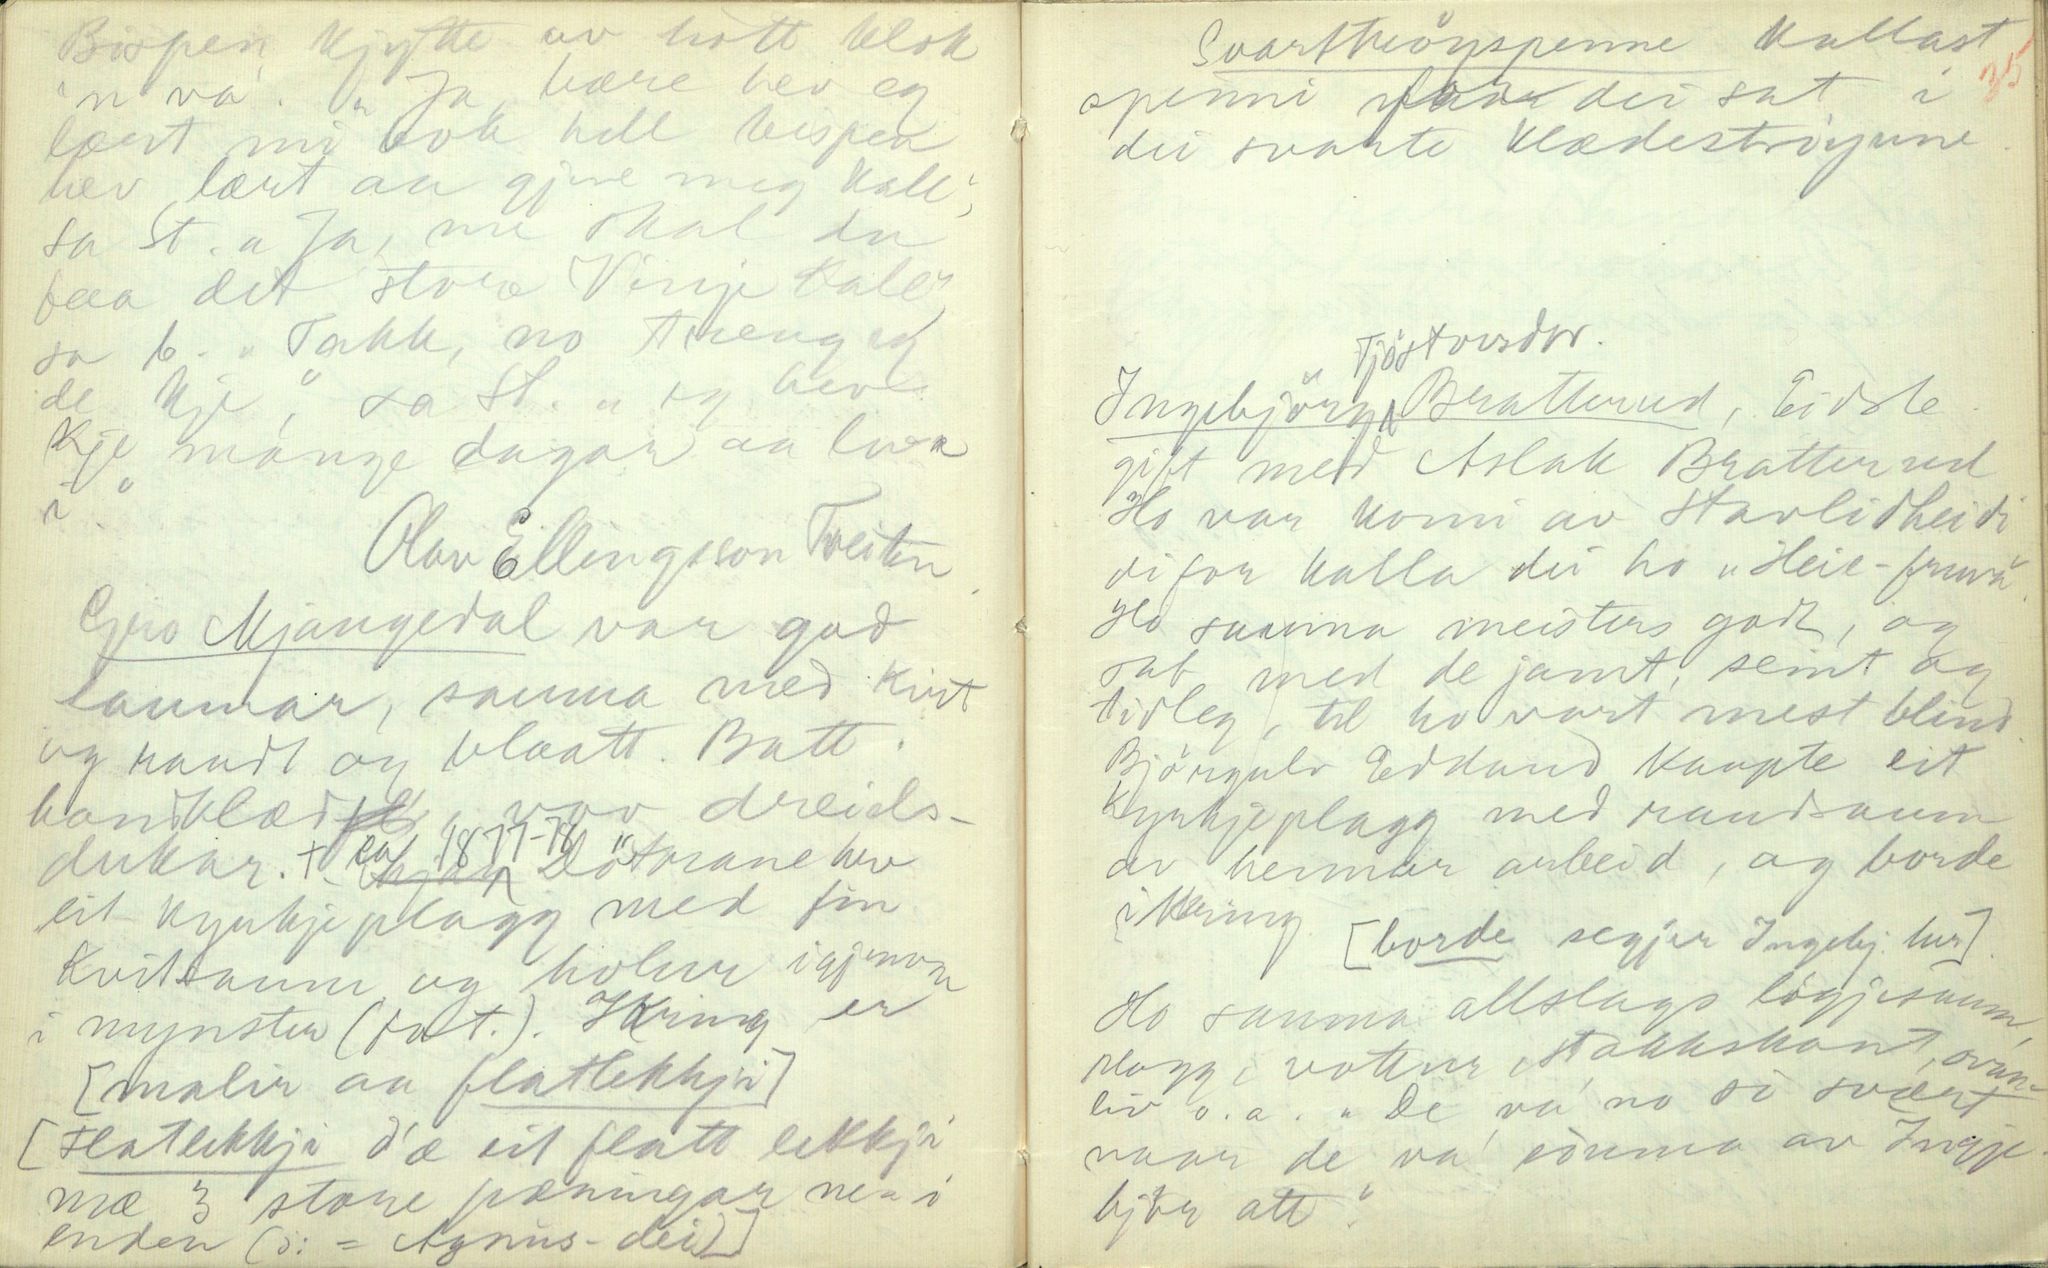 Bispen kjytte av hott klok
'n va'. "Ja, bære hev eg
lært mi bok hell bispen
hev lært aa gjeve meg kall",
sa St. "Ja, nu skal du
faa det store Vinje kall",
sa b. "Takk, no treng eg
de kje", sa St. "eg hev
kje mange dagar aa liva
i."
Olav Ellingsson Treiten
Gro Mjaugedal var god
saumar, sauma med kvit
og raudt og blaatt. Batt
handklæde, vov dreids-
dukar. + ca 1877-78 Döttrane hev
eit kyrkjeplagg med fin
kvitsaum og holur igjenom
i mynster (fat.). Ikring er
[malir aa flatlekkji]
[Flatlekkji d'æ eit flatt lekkji
mæ 3 store pæningar ne i
enden (ɔ: = Agnus-dei)]
Svarttröyspenne kallast 35
spenni dei sat i
dei svarte klædeströyune.
Tjöstovsdtr.
Ingebjörg Bratterud, Eidsb.
gift med Aslak Bratterud
Ho var komi av Stavlidheidi
difor kalla dei ho "Heie-fruva".
Ho sauma meisters godt, og
sat med de jamt, seint og
tidleg, til ho vart mest blind.
Björgulv Eddand kaupte eit
kyrkjeplagg med raudsaum
av hennar arbeid, og borde
ikring. [borde segjer Ingebj. her].
Ho sauma allslags lögjesaum,
plagg, vottur, stakkskant, svan-
liv o.a. "De va' no så svært
naar de va' sauma av Ingje-
björ att".